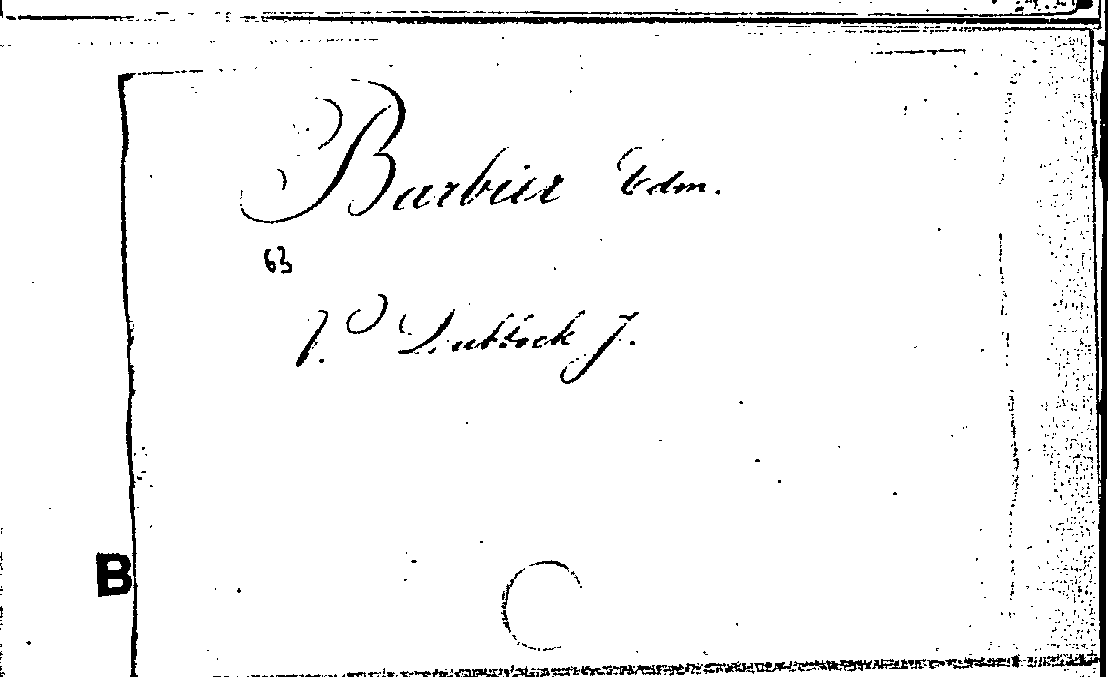 Barbier Edm.
63
V. Lubbock J.
B